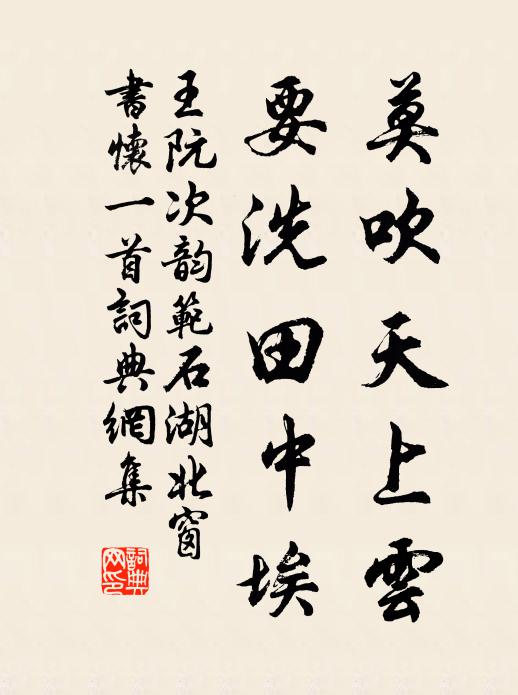 莫吹天上雲
要洗田中埃
王阮次韵範石湖北窗
書懷一首詞典網集
詞典網印